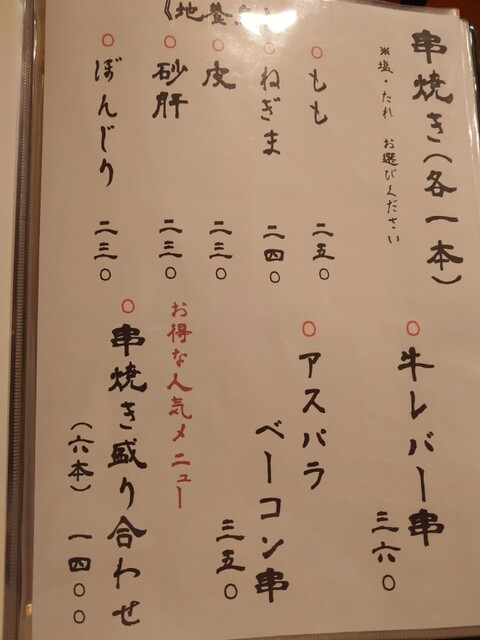 串焼き(各一本)
※塩・たれ お選びください
《地養鳥》
○もも 二五〇
○ねぎま 二四〇
○皮 二三〇
○砂肝 二三〇
○ぼんじり 二三〇
○牛レバー串 三六〇
○アスパラ
ベーコン串 三五〇
お得な人気メニュー
○串焼き盛り合わせ
(六本) 一四〇〇